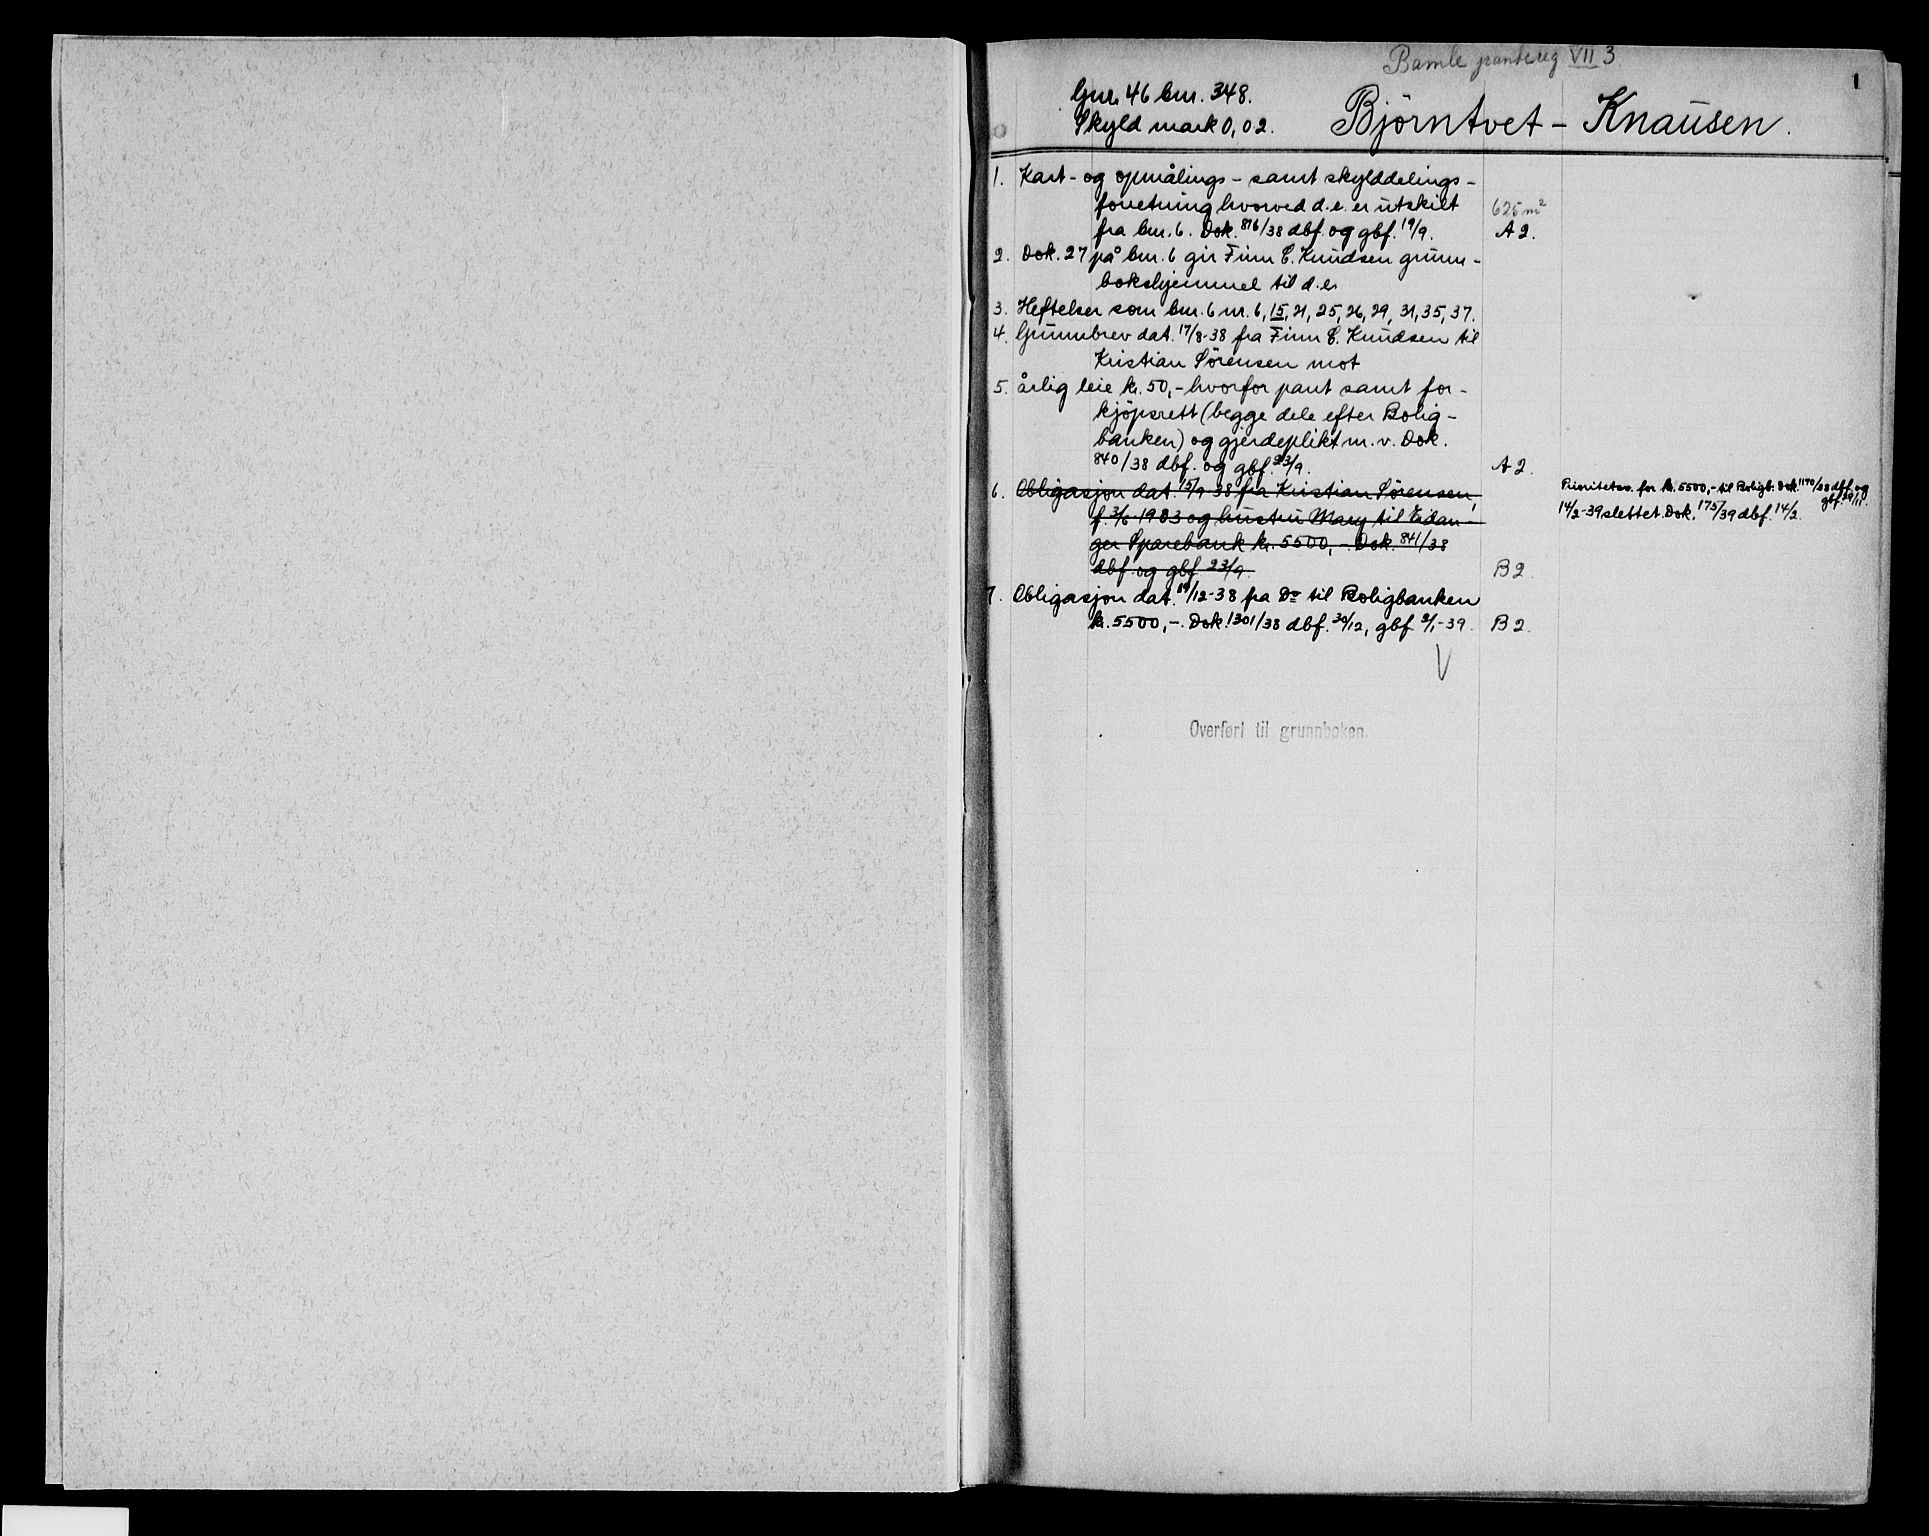 Bamle pantereg VII 3
1
Gnr. 46 bnr. 348.
Skyld mark 0,02.
Bjørntvet - Knausen.
1. Kart- og opmålings- samt skylddelings-
forretning hvorved d.e. er utskilt
625 m²
fra bnr. 6. Dok. 816/38 dbf. og gbf. 19/9.
A 2.
2. Dok. 27 på bnr. 6 gir Finn C. Knudsen grunn-
bokshjemmel til d.e.
3. Heftelser som bnr. 6 nr. 6, 15, 21, 25, 26, 29, 31, 35, 37.
4. Grunnbrev dat. 17/8-38 fra Finn C. Knudsen til
Kristian Sørensen mot
5. årlig leie kr. 50,- hvorfor pant samt for-
kjøpsrett (begge dele efter Bolig-
banken) og gjerdeplikt m.v. Dok.
840/38 dbf. og gbf. 23/9.
A 2.
6. Obligasjon dat. 15/9-38 fra Kristian Sørensen,
f. 3/6-1903 og hustru Mary til Eidan-
ger Sparebank kr. 5500,- Dok. 841/38
dbf. og gbf. 23/9.
B 2.
Prioritetsv. for kr. 5500,- til Boligb. Dok. 1170/38 dbf. og
gbf. 29/11.
14/2-39 slettet. Dok. 175/39 dbf. 14/2.
7. Obligasjon dat. 19/12-38 fra Do til Boligbanken
kr. 5500,-. Dok. 1301/38 dbf. 30/12, gbf. 2/1-39.
B 2.
Overført til grunnboken.